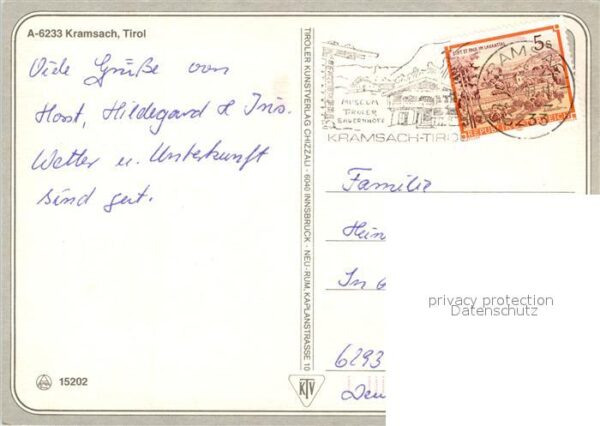 A-6233 Kramsach, Tirol
Viele Grüße von
Horst, Hildegard & Iris.
Wetter u. Unterkunft
sind gut.
15202
TIROLER KUNSTVERLAG CHIZZALI · 6040 INNSBRUCK - NEU-RUM, KAPLANSTRASSE 10
KTV
MUSEUM
TIROLER
BAUERNHÖFE
KRAMSACH-TIROL
STIFT ST. PAUL IM LAVANTTAL
5s
REPUBLIK ÖSTERREICH
KRAMSACH
6233
Familie
Hein
In
6293
Deu
privacy protection
Datenschutz